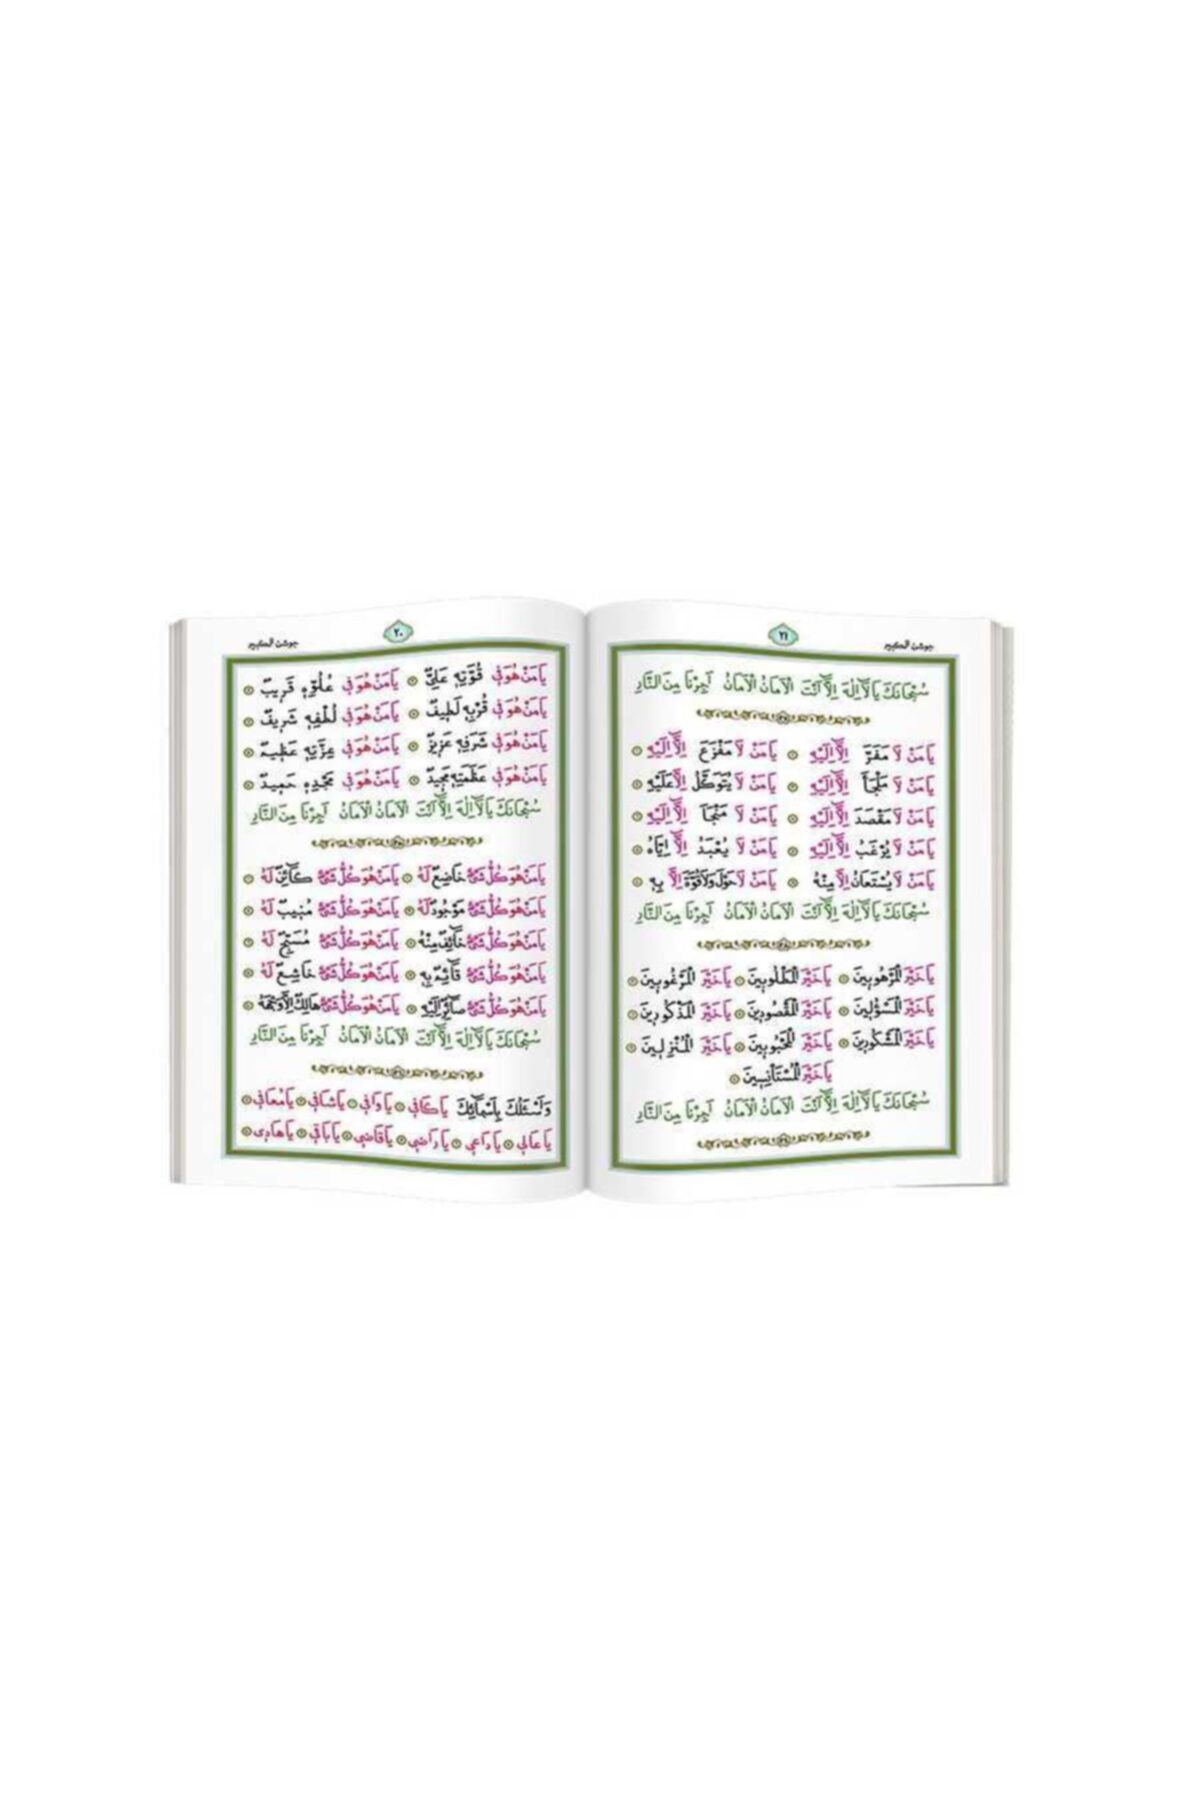 جوشن الكبير
٢٠
يَا مَنْ هُوَ فِي قُوَّتِهِ عَلِيٌّ ۞ يَا مَنْ هُوَ فِي عُلُوِّهِ قَرِيبٌ ۞
يَا مَنْ هُوَ فِي قُرْبِهِ لَطِيفٌ ۞ يَا مَنْ هُوَ فِي لُطْفِهِ شَرِيفٌ ۞
يَا مَنْ هُوَ فِي شَرَفِهِ عَزِيزٌ ۞ يَا مَنْ هُوَ فِي عِزَّتِهِ عَظِيمٌ ۞
يَا مَنْ هُوَ فِي عَظَمَتِهِ مَجِيدٌ ۞ يَا مَنْ هُوَ فِي مَجْدِهِ حَمِيدٌ ۞
سُبْحَانَكَ يَا لَا اِلٰهَ اِلَّا اَنْتَ الْاَمَانُ الْاَمَانُ اَجِرْنَا مِنَ النَّارِ
يَا مَنْ هُوَ كُلُّ شَيْءٍ خَاضِعٌ لَهُ ۞ يَا مَنْ هُوَ كُلُّ شَيْءٍ كَائِنٌ لَهُ ۞
يَا مَنْ هُوَ كُلُّ شَيْءٍ مَوْجُودٌ لَهُ ۞ يَا مَنْ هُوَ كُلُّ شَيْءٍ مُنِيبٌ لَهُ ۞
يَا مَنْ هُوَ كُلُّ شَيْءٍ خَائِفٌ مِنْهُ ۞ يَا مَنْ هُوَ كُلُّ شَيْءٍ مُسَبِّحٌ لَهُ ۞
يَا مَنْ هُوَ كُلُّ شَيْءٍ قَائِمٌ بِهِ ۞ يَا مَنْ هُوَ كُلُّ شَيْءٍ خَاشِعٌ لَهُ ۞
يَا مَنْ هُوَ كُلُّ شَيْءٍ صَائِرٌ اِلَيْهِ ۞ يَا مَنْ هُوَ كُلُّ شَيْءٍ هَالِكٌ اِلَّا وَجْهَهُ ۞
سُبْحَانَكَ يَا لَا اِلٰهَ اِلَّا اَنْتَ الْاَمَانُ الْاَمَانُ اَجِرْنَا مِنَ النَّارِ
وَنَسْئَلُكَ بِاَسْمَائِكَ يَا كَافِي ۞ يَا وَافِي ۞ يَا شَافِي ۞ يَا مُعَافِي ۞
يَا عَالِي ۞ يَا دَاعِي ۞ يَا رَاضِي ۞ يَا قَاضِي ۞ يَا بَاقِي ۞ يَا هَادِي ۞
جوشن الكبير
٢١
سُبْحَانَكَ يَا لَا اِلٰهَ اِلَّا اَنْتَ الْاَمَانُ الْاَمَانُ اَجِرْنَا مِنَ النَّارِ
يَا مَنْ لَا مَفَرَّ اِلَّا اِلَيْهِ ۞ يَا مَنْ لَا مَفْزَعَ اِلَّا اِلَيْهِ ۞
يَا مَنْ لَا مَلْجَأَ اِلَّا اِلَيْهِ ۞ يَا مَنْ لَا يُتَوَكَّلُ اِلَّا عَلَيْهِ ۞
يَا مَنْ لَا مَقْصَدَ اِلَّا اِلَيْهِ ۞ يَا مَنْ لَا مَنْجَأَ اِلَّا اِلَيْهِ ۞
يَا مَنْ لَا يُرْغَبُ اِلَّا اِلَيْهِ ۞ يَا مَنْ لَا يُعْبَدُ اِلَّا اِيَّاهُ ۞
يَا مَنْ لَا يُسْتَعَانُ اِلَّا مِنْهُ ۞ يَا مَنْ لَا حَوْلَ وَلَا قُوَّةَ اِلَّا بِهِ ۞
سُبْحَانَكَ يَا لَا اِلٰهَ اِلَّا اَنْتَ الْاَمَانُ الْاَمَانُ اَجِرْنَا مِنَ النَّارِ
يَا خَيْرَ الْمَرْهُوبِينَ ۞ يَا خَيْرَ الْمَطْلُوبِينَ ۞ يَا خَيْرَ الْمَرْغُوبِينَ ۞
يَا خَيْرَ الْمَسْؤُلِينَ ۞ يَا خَيْرَ الْمَقْصُودِينَ ۞ يَا خَيْرَ الْمَذْكُورِينَ ۞
يَا خَيْرَ الْمَشْكُورِينَ ۞ يَا خَيْرَ الْمَحْبُوبِينَ ۞ يَا خَيْرَ الْمُنْزِلِينَ ۞
يَا خَيْرَ الْمُسْتَأْنِسِينَ ۞
سُبْحَانَكَ يَا لَا اِلٰهَ اِلَّا اَنْتَ الْاَمَانُ الْاَمَانُ اَجِرْنَا مِنَ النَّارِ